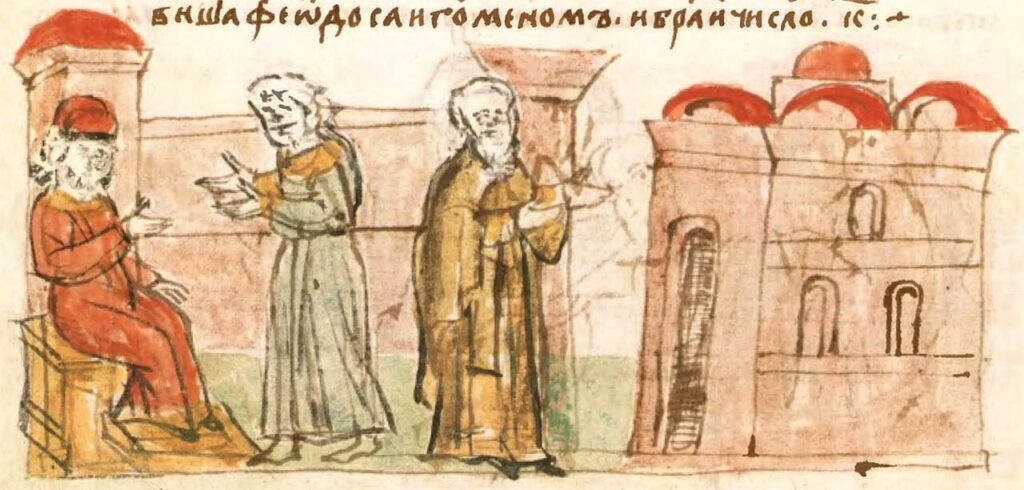 виша феѡдоса игоменомъ. ибраи число. к:~